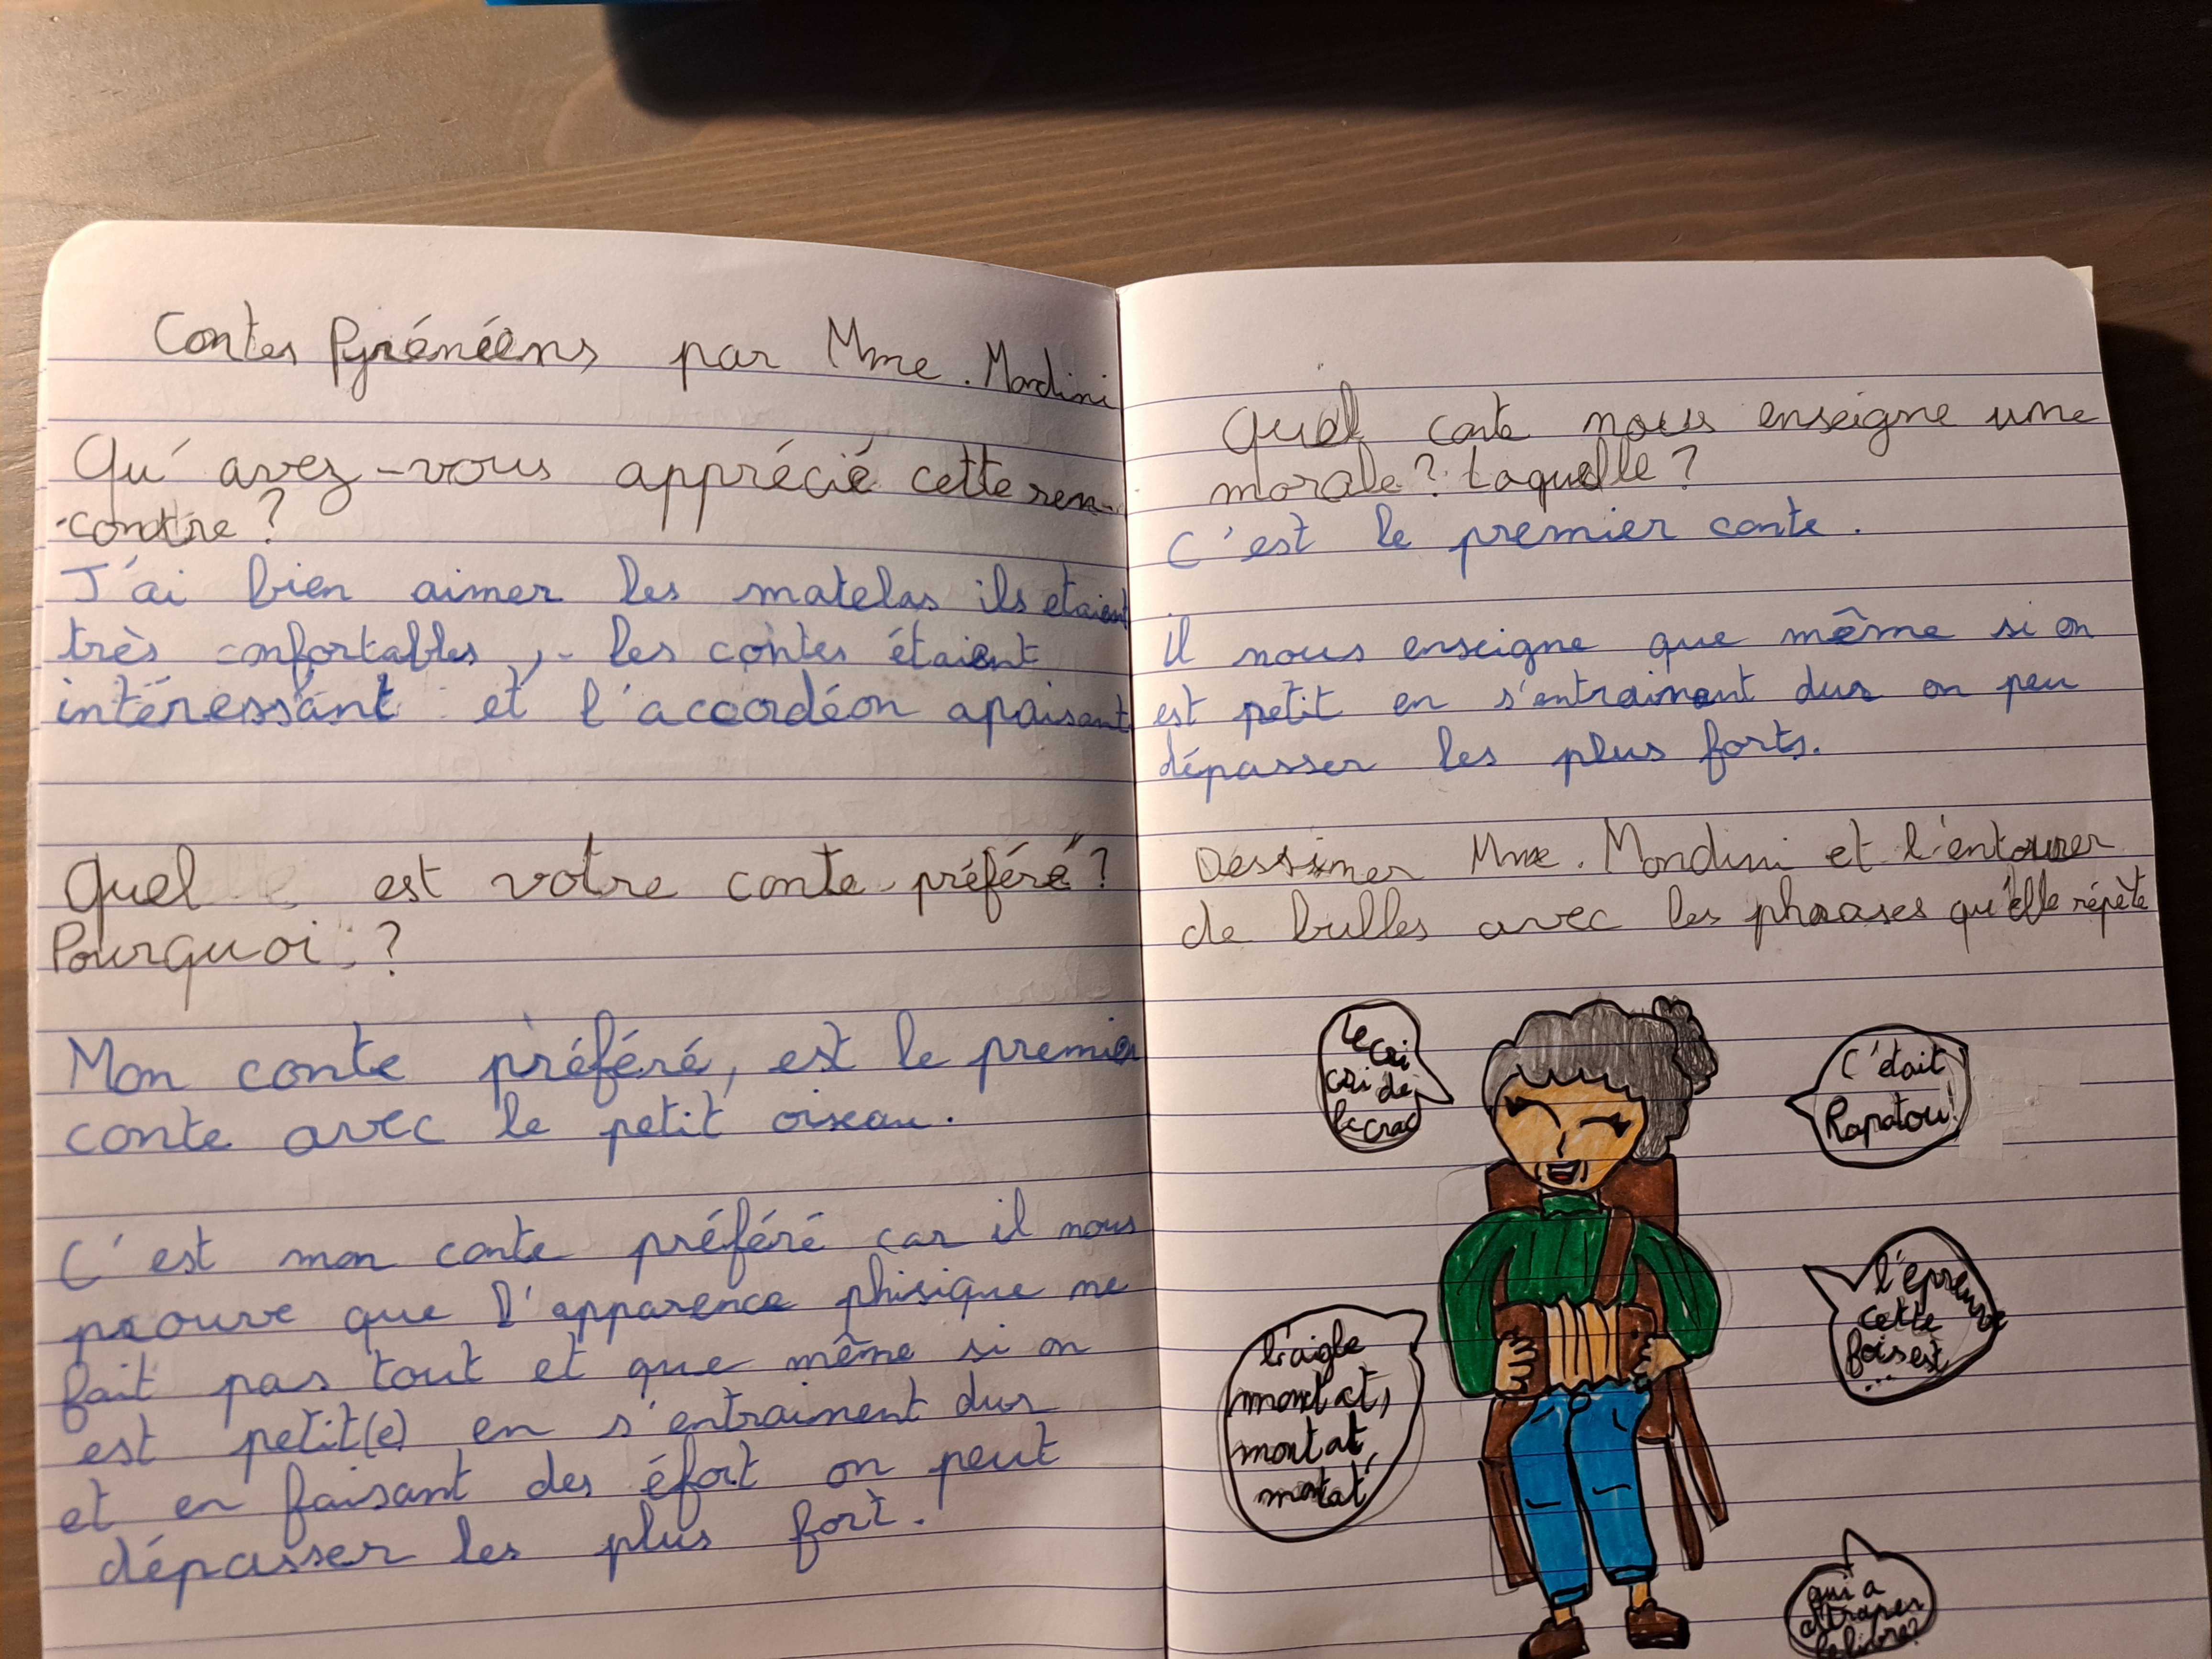 Contes Pyrénéens par Mme. Mondini
Qu'avez-vous apprécié cette ren-
-contre ?
J'ai bien aimer les matelas ils etaient
très confortables, les contes étaient
intéressant et l'accordéon apaisant
Quel est votre conte préféré ?
Pourquoi ?
Mon conte préféré, est le premier
conte avec le petit oiseau.
C'est mon conte préféré car il nous
prouve que l'apparence phisique ne
fait pas tout et que même si on
est petit(e) en s'entraiment dur
et en faisant des éfort on peut
dépasser les plus fort.
Quel conte nous enseigne une
morale ? Laquelle ?
C'est le premier conte.
il nous enseigne que même si on
est petit en s'entrainent dur on peu
dépasser les plus forts.
Dessiner Mme. Mondini et l'entourer
de bulles avec les phrases qu'elle répète
le cri
cri de
le crac
C'était
Rapatou!
l'épreuve
cette
fois est
...
l'aigle
montat,
montat,
montat
qui a
attraper
le lièvre?